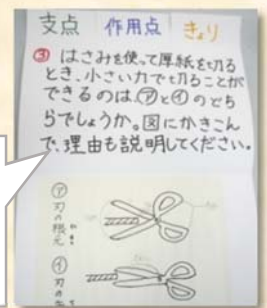 支点　作用点　きょり
③ はさみを使って厚紙を切る
とき、小さい力で切ることが
できるのは、㋐と㋑のどち
らでしょうか。図にかきこん
で、理由も説明してください。
㋐ 刃の根元
㋑ 刃の